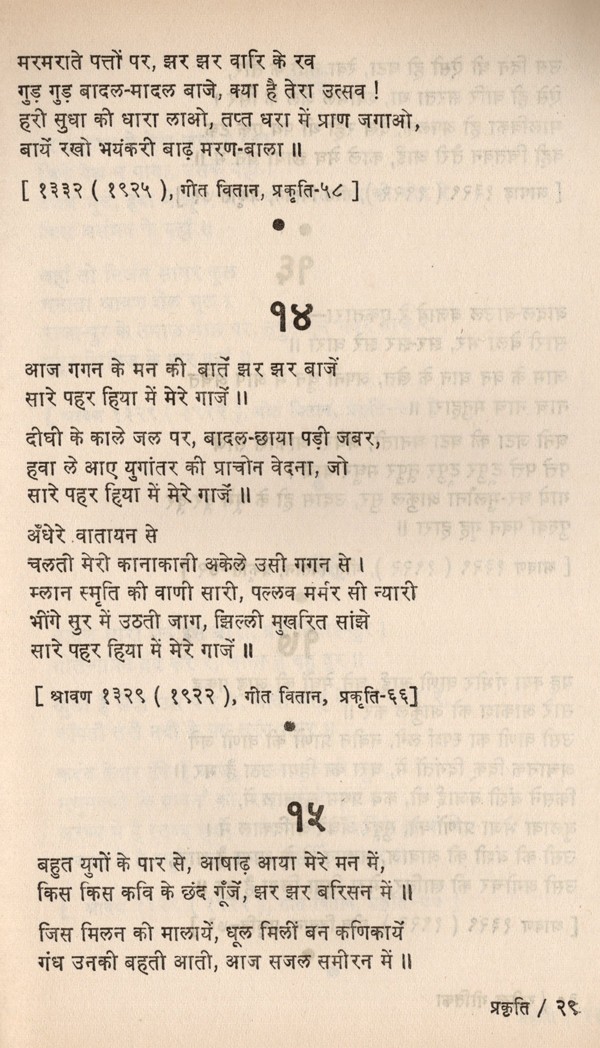 मरमराते पत्तों पर, झर झर वारि के रव
गुड़ गुड़ बादल-मादल बाजे, क्या है तेरा उत्सव !
हरी सुधा की धारा लाओ, तप्त धरा में प्राण जगाओ,
बायें रखो भयंकरी बाढ़ मरण-बाला ॥
[ १३३२ ( १९२५ ), गीत वितान, प्रकृति-५८ ]
१४
आज गगन के मन की बातें झर झर बाजें
सारे पहर हिया में मेरे गाजें ॥
दीघी के काले जल पर, बादल-छाया पड़ी जबर,
हवा ले आए युगांतर की प्राचीन वेदना, जो
सारे पहर हिया में मेरे गाजें ॥
अँधेरे वातायन से
चलती मेरी कानाकानी अकेले उसी गगन से ।
म्लान स्मृति की वाणी सारी, पल्लव मर्मर सी न्यारी
भींगे सुर में उठती जाग, झिल्ली मुखरित सांझे
सारे पहर हिया में मेरे गाजें ॥
[ श्रावण १३२९ ( १९२२ ), गीत वितान, प्रकृति-६६]
१५
बहुत युगों के पार से, आषाढ़ आया मेरे मन में,
किस किस कवि के छंद गूँजें, झर झर बरिसन में ॥
जिस मिलन की मालायें, धूल मिलीं बन कणिकायें
गंध उनकी बहती आती, आज सजल समीरन में ॥
प्रकृति / २९